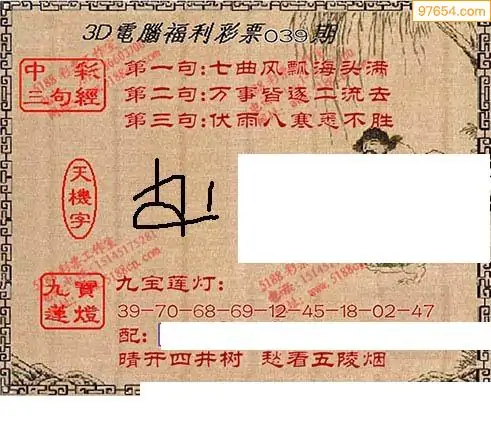 97654.com
3D電腦福利彩票039期
中彩三句經
第一句:七曲风瓢海头满
第二句:万事皆逐二流去
第三句:伏雨八寒悉不胜
天機字
九寶蓮燈
九宝莲灯:
39-70-68-69-12-45-18-02-47
配:
晴开四井树 愁看五陵烟